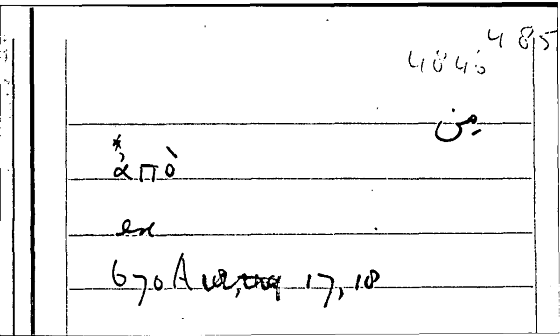 485
4840
من
*ἀπὸ
ex
670A 17, 18